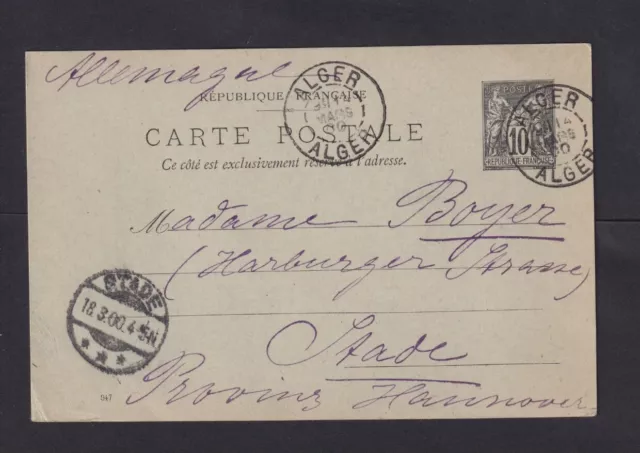 Allemagne
RÉPUBLIQUE FRANÇAISE
CARTE POSTALE
Ce côté est exclusivement réservé à l'adresse.
ALGER
14
MARS
ALGER
POSTE
10
REPUBLIQUE FRANÇAISE
ALGER
14
MARS
ALGER
Madame Boyer
(Harburger Strasse)
Stade
Provinz Hannover
STADE
18.3.00.4-5N
***
047